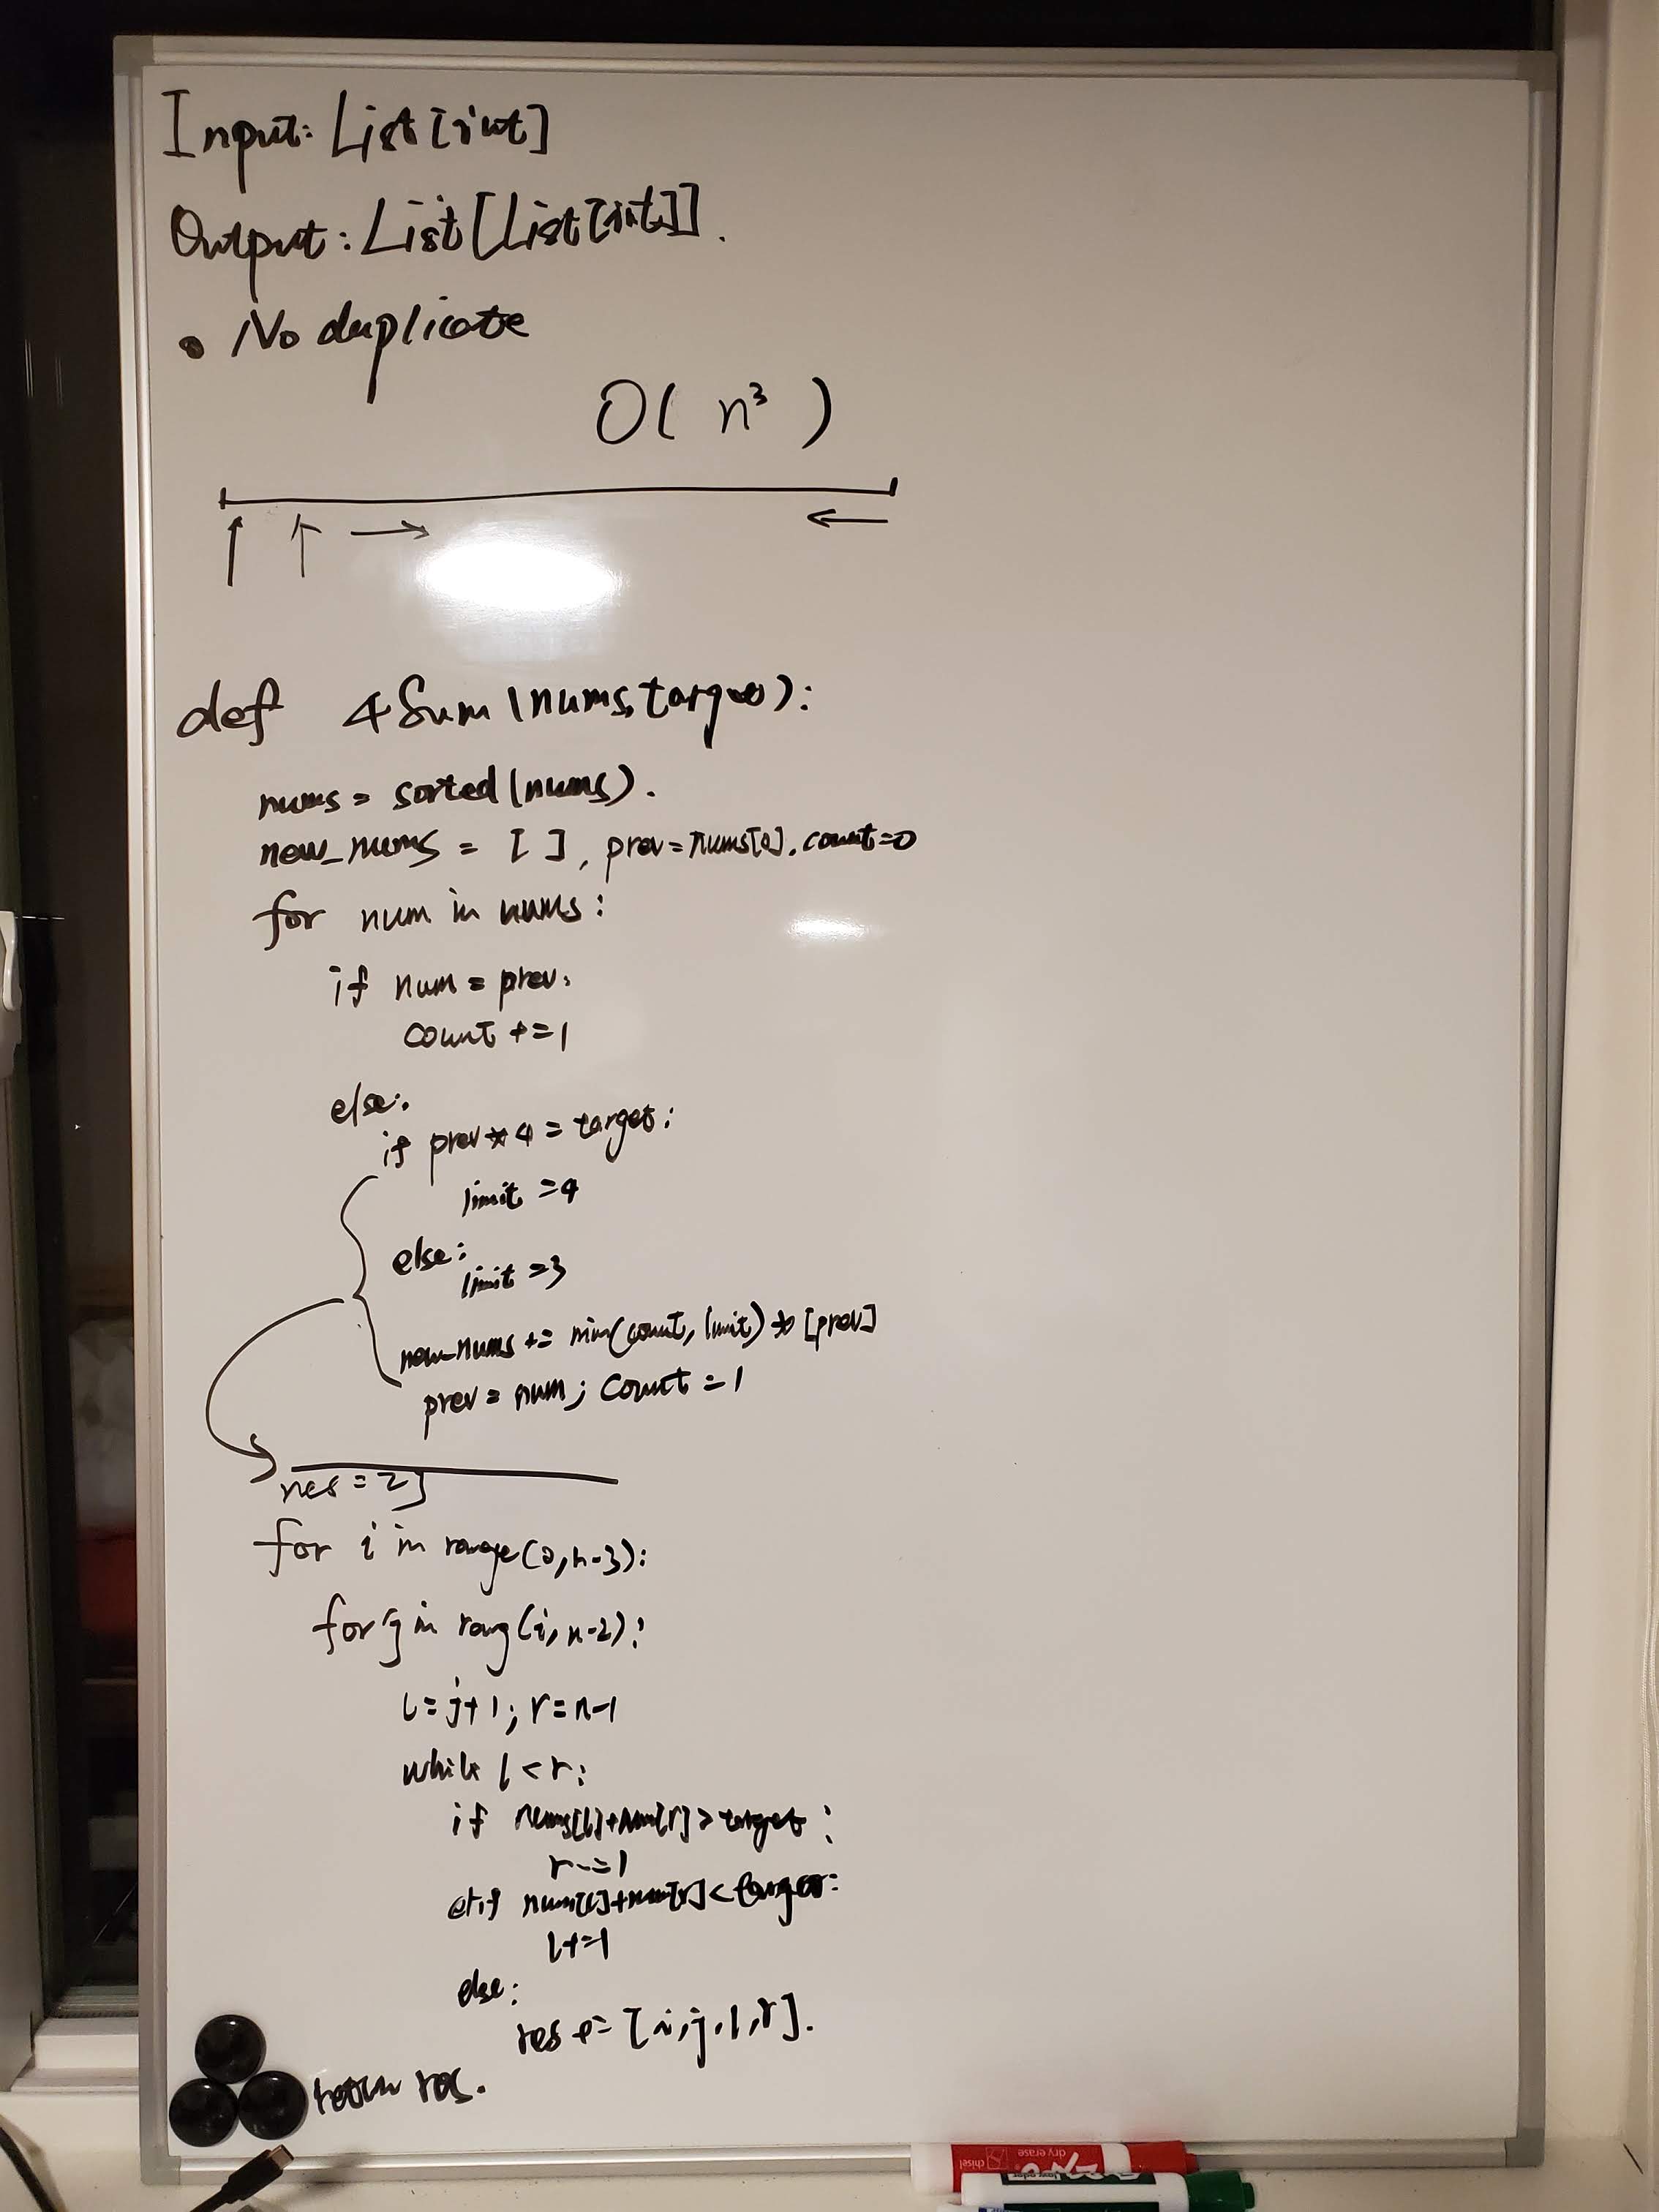 Input: List[int]
Output: List[List[int]].
• No duplicate
O( n³ )
def 4Sum(nums, target):
nums = sorted(nums).
new_nums = [ ], prev = nums[0], count=0
for num in nums:
if num = prev:
count +=1
else:
if prev * 4 = target:
limit = 4
else:
limit = 3
new_nums += min(count, limit) * [prev]
prev = num; count = 1
res = []
for i in range(0, n-3):
for j in rang(i, n-2):
l = j+1; r = n-1
while l < r:
if nums[l]+num[r] > target:
r -= 1
elif num[l]+num[r] < target:
l+=1
else:
res += [i, j, l, r].
return res.
chisel
dry erase
EXPO